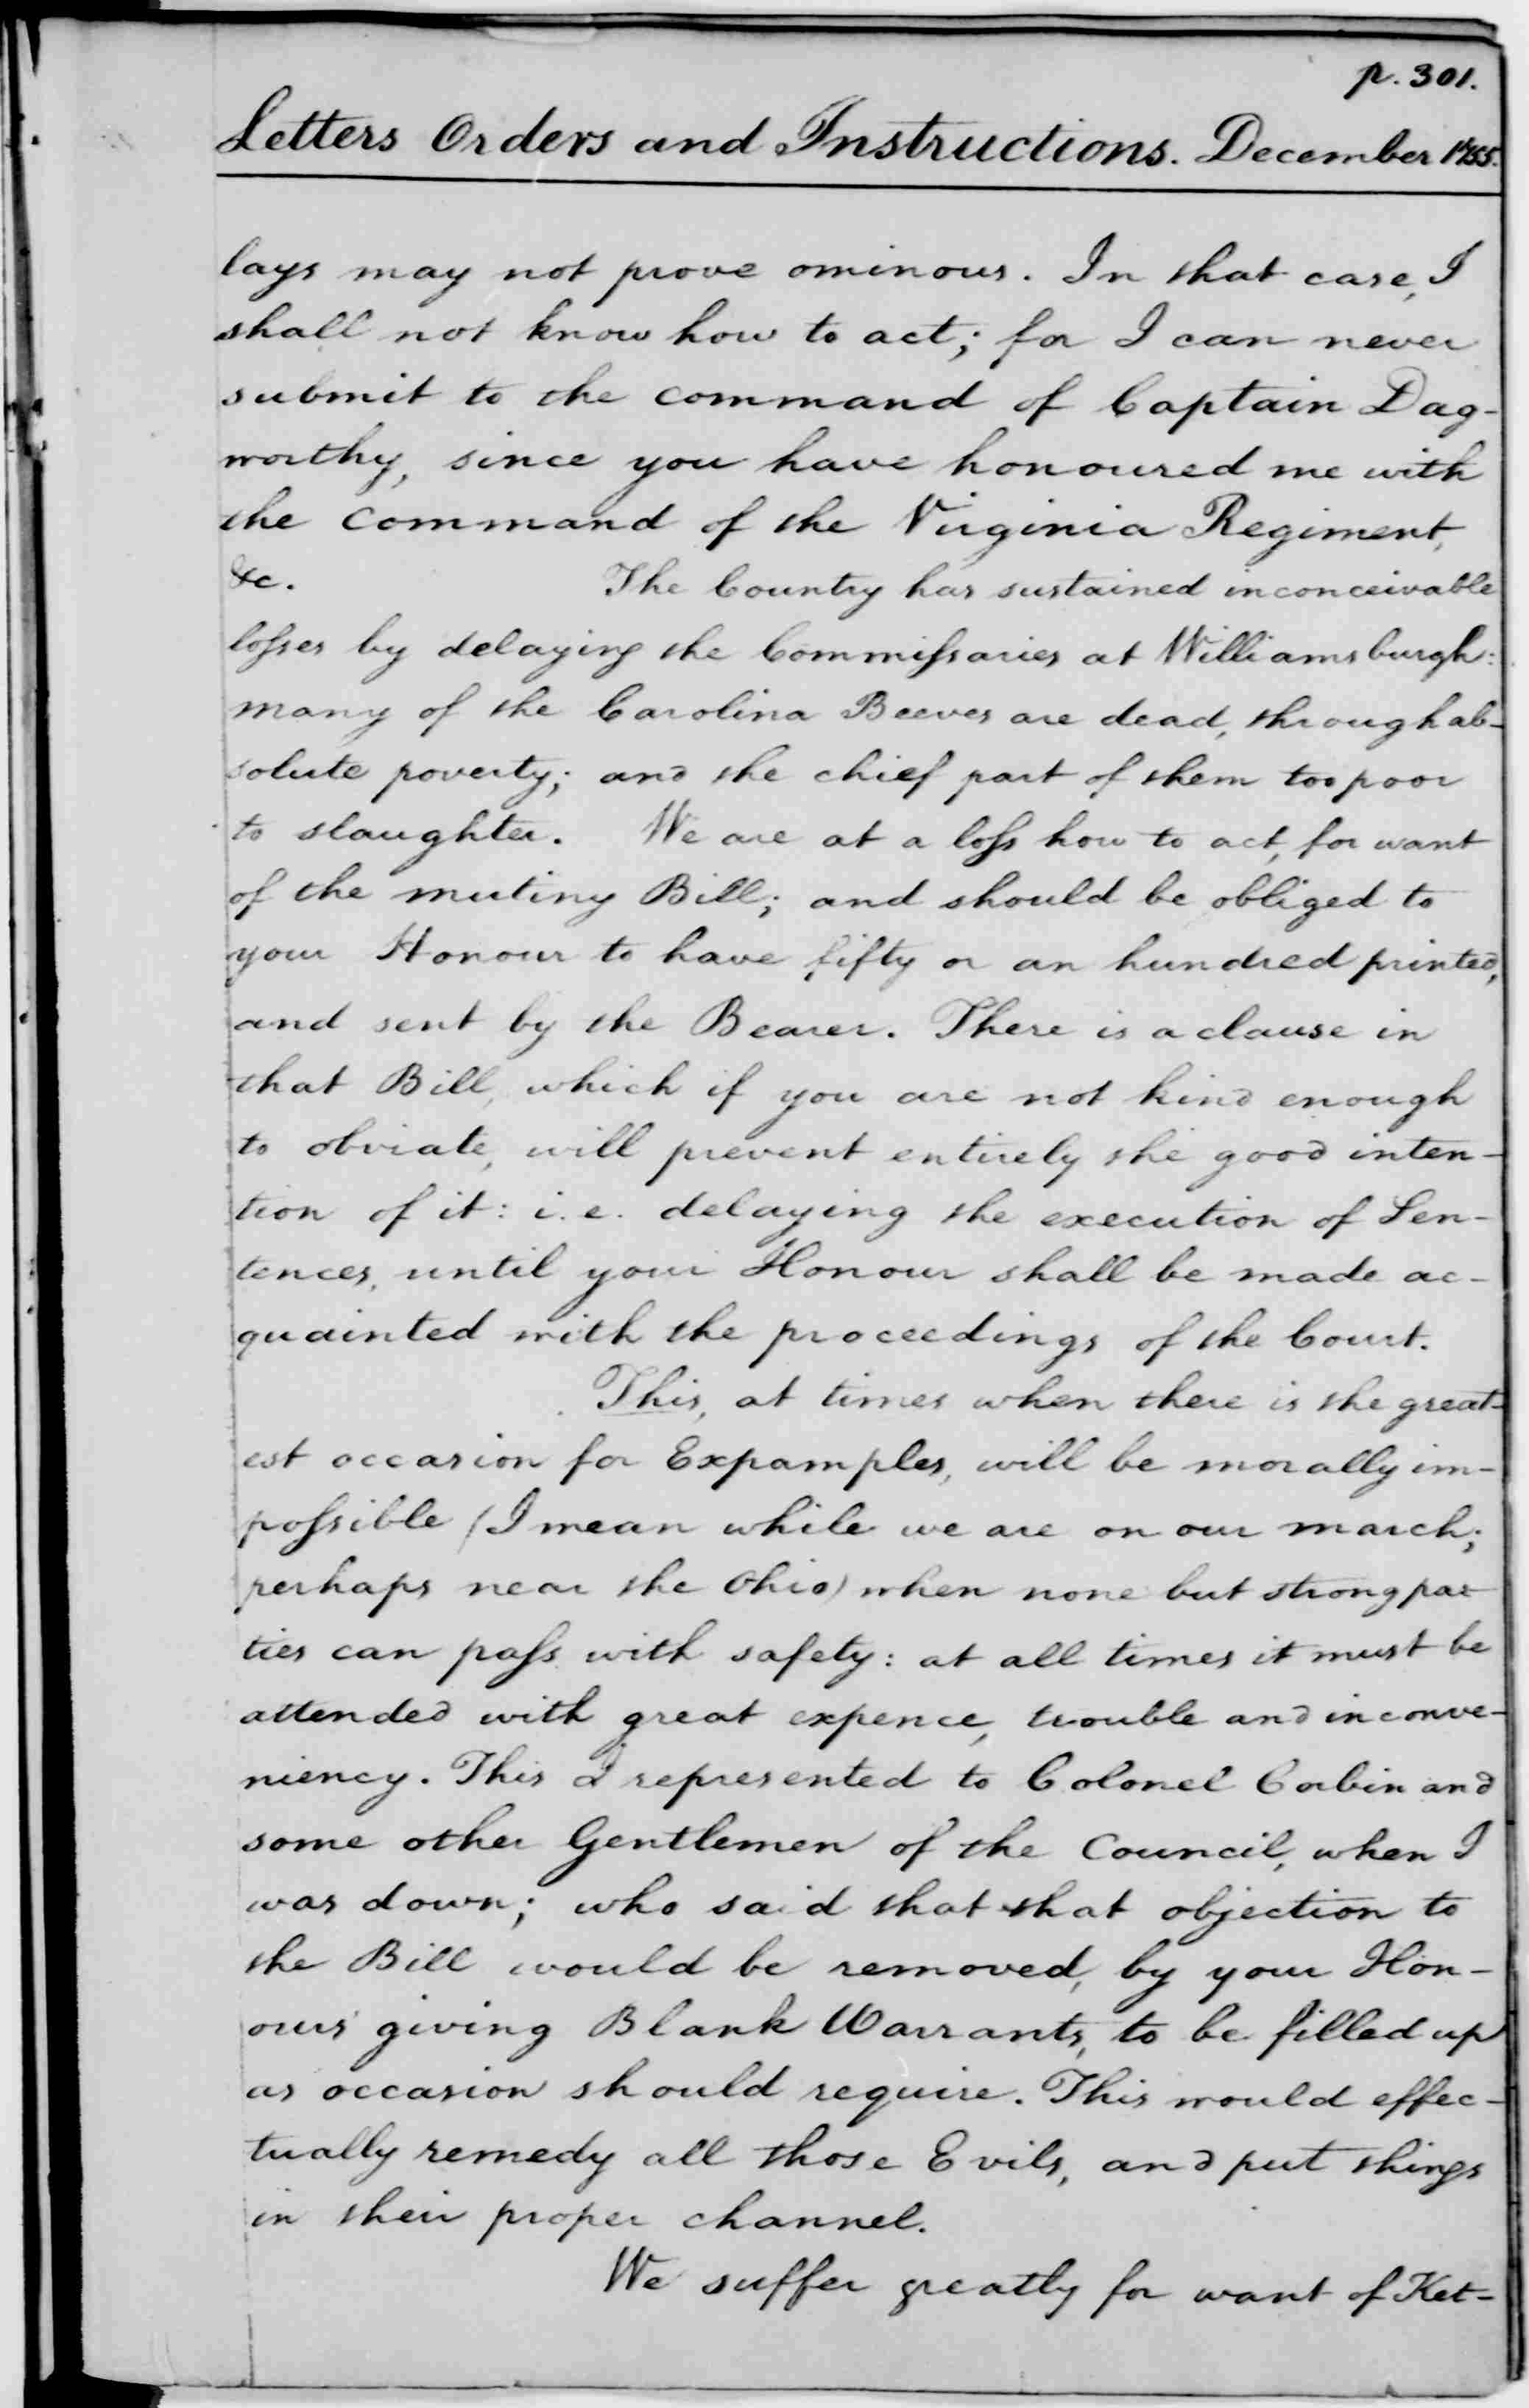 p. 301.
Letters Orders and Instructions. December 1755.
lays may not prove ominous. In that case, I
shall not know how to act; for I can never
submit to the command of Captain Dag-
worthy, since you have honoured me with
the command of the Virginia Regiment,
&c. The Country has sustained inconceivable
losses by delaying the Commissaries at Williamsburgh:
many of the Carolina Beeves are dead, through ab-
solute poverty; and the chief part of them too poor
to slaughter. We are at a loss how to act, for want
of the mutiny Bill; and should be obliged to
your Honour to have fifty or an hundred printed,
and sent by the Bearer. There is a clause in
that Bill, which if you are not kind enough
to obviate, will prevent entirely the good inten-
tion of it: i.e. delaying the execution of Sen-
tences, until your Honour shall be made ac-
quainted with the proceedings of the Court.
This, at times when there is the great-
est occasion for Expamples, will be morally im-
possible (I mean while we are on our march;
perhaps near the Ohio) when none but strong par-
ties can pass with safety: at all times it must be
attended with great expence, trouble and inconve-
niency. This I represented to Colonel Corbin and
some other Gentlemen of the Council, when I
was down; who said that that objection to
the Bill would be removed, by your Hon-
ours' giving Blank Warrants, to be filled up
as occasion should require. This would effec-
tually remedy all those Evils, and put things
in their proper channel.
We suffer greatly for want of Ket-